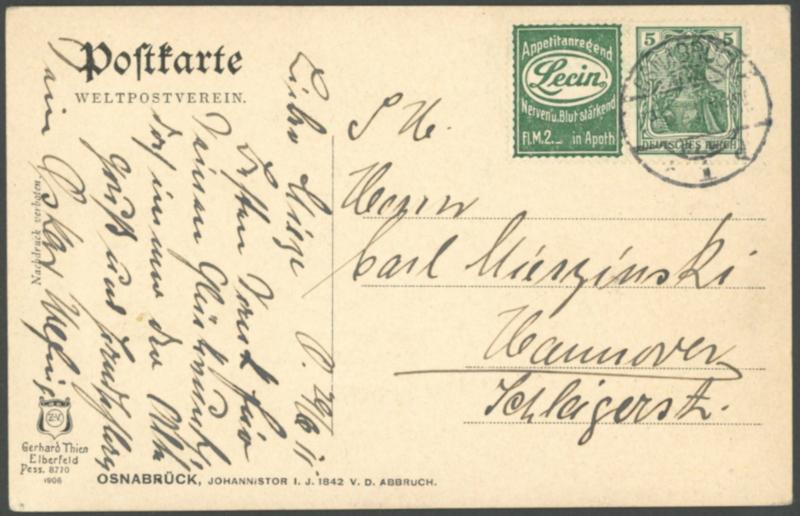 Postkarte
WELTPOSTVEREIN.
Appetitanregend
Lecin
Nerven u. Blut stärkend
Fl. M. 2._ in Apoth
5 5
DEUTSCHES REICH
S. H.
Herrn
Carl Mierzinski
Hannover
Schlägerstr.
O. 29/6 11.
Besten Dank für
Deinen Glückwunsch,
immer der Alte
Gruß und
Dein
Nachdruck verboten
Z.-V.
Gerhard Thien
Elberfeld
Pess. 8770
1906
OSNABRÜCK, JOHANNISTOR I. J. 1842 V. D. ABBRUCH.